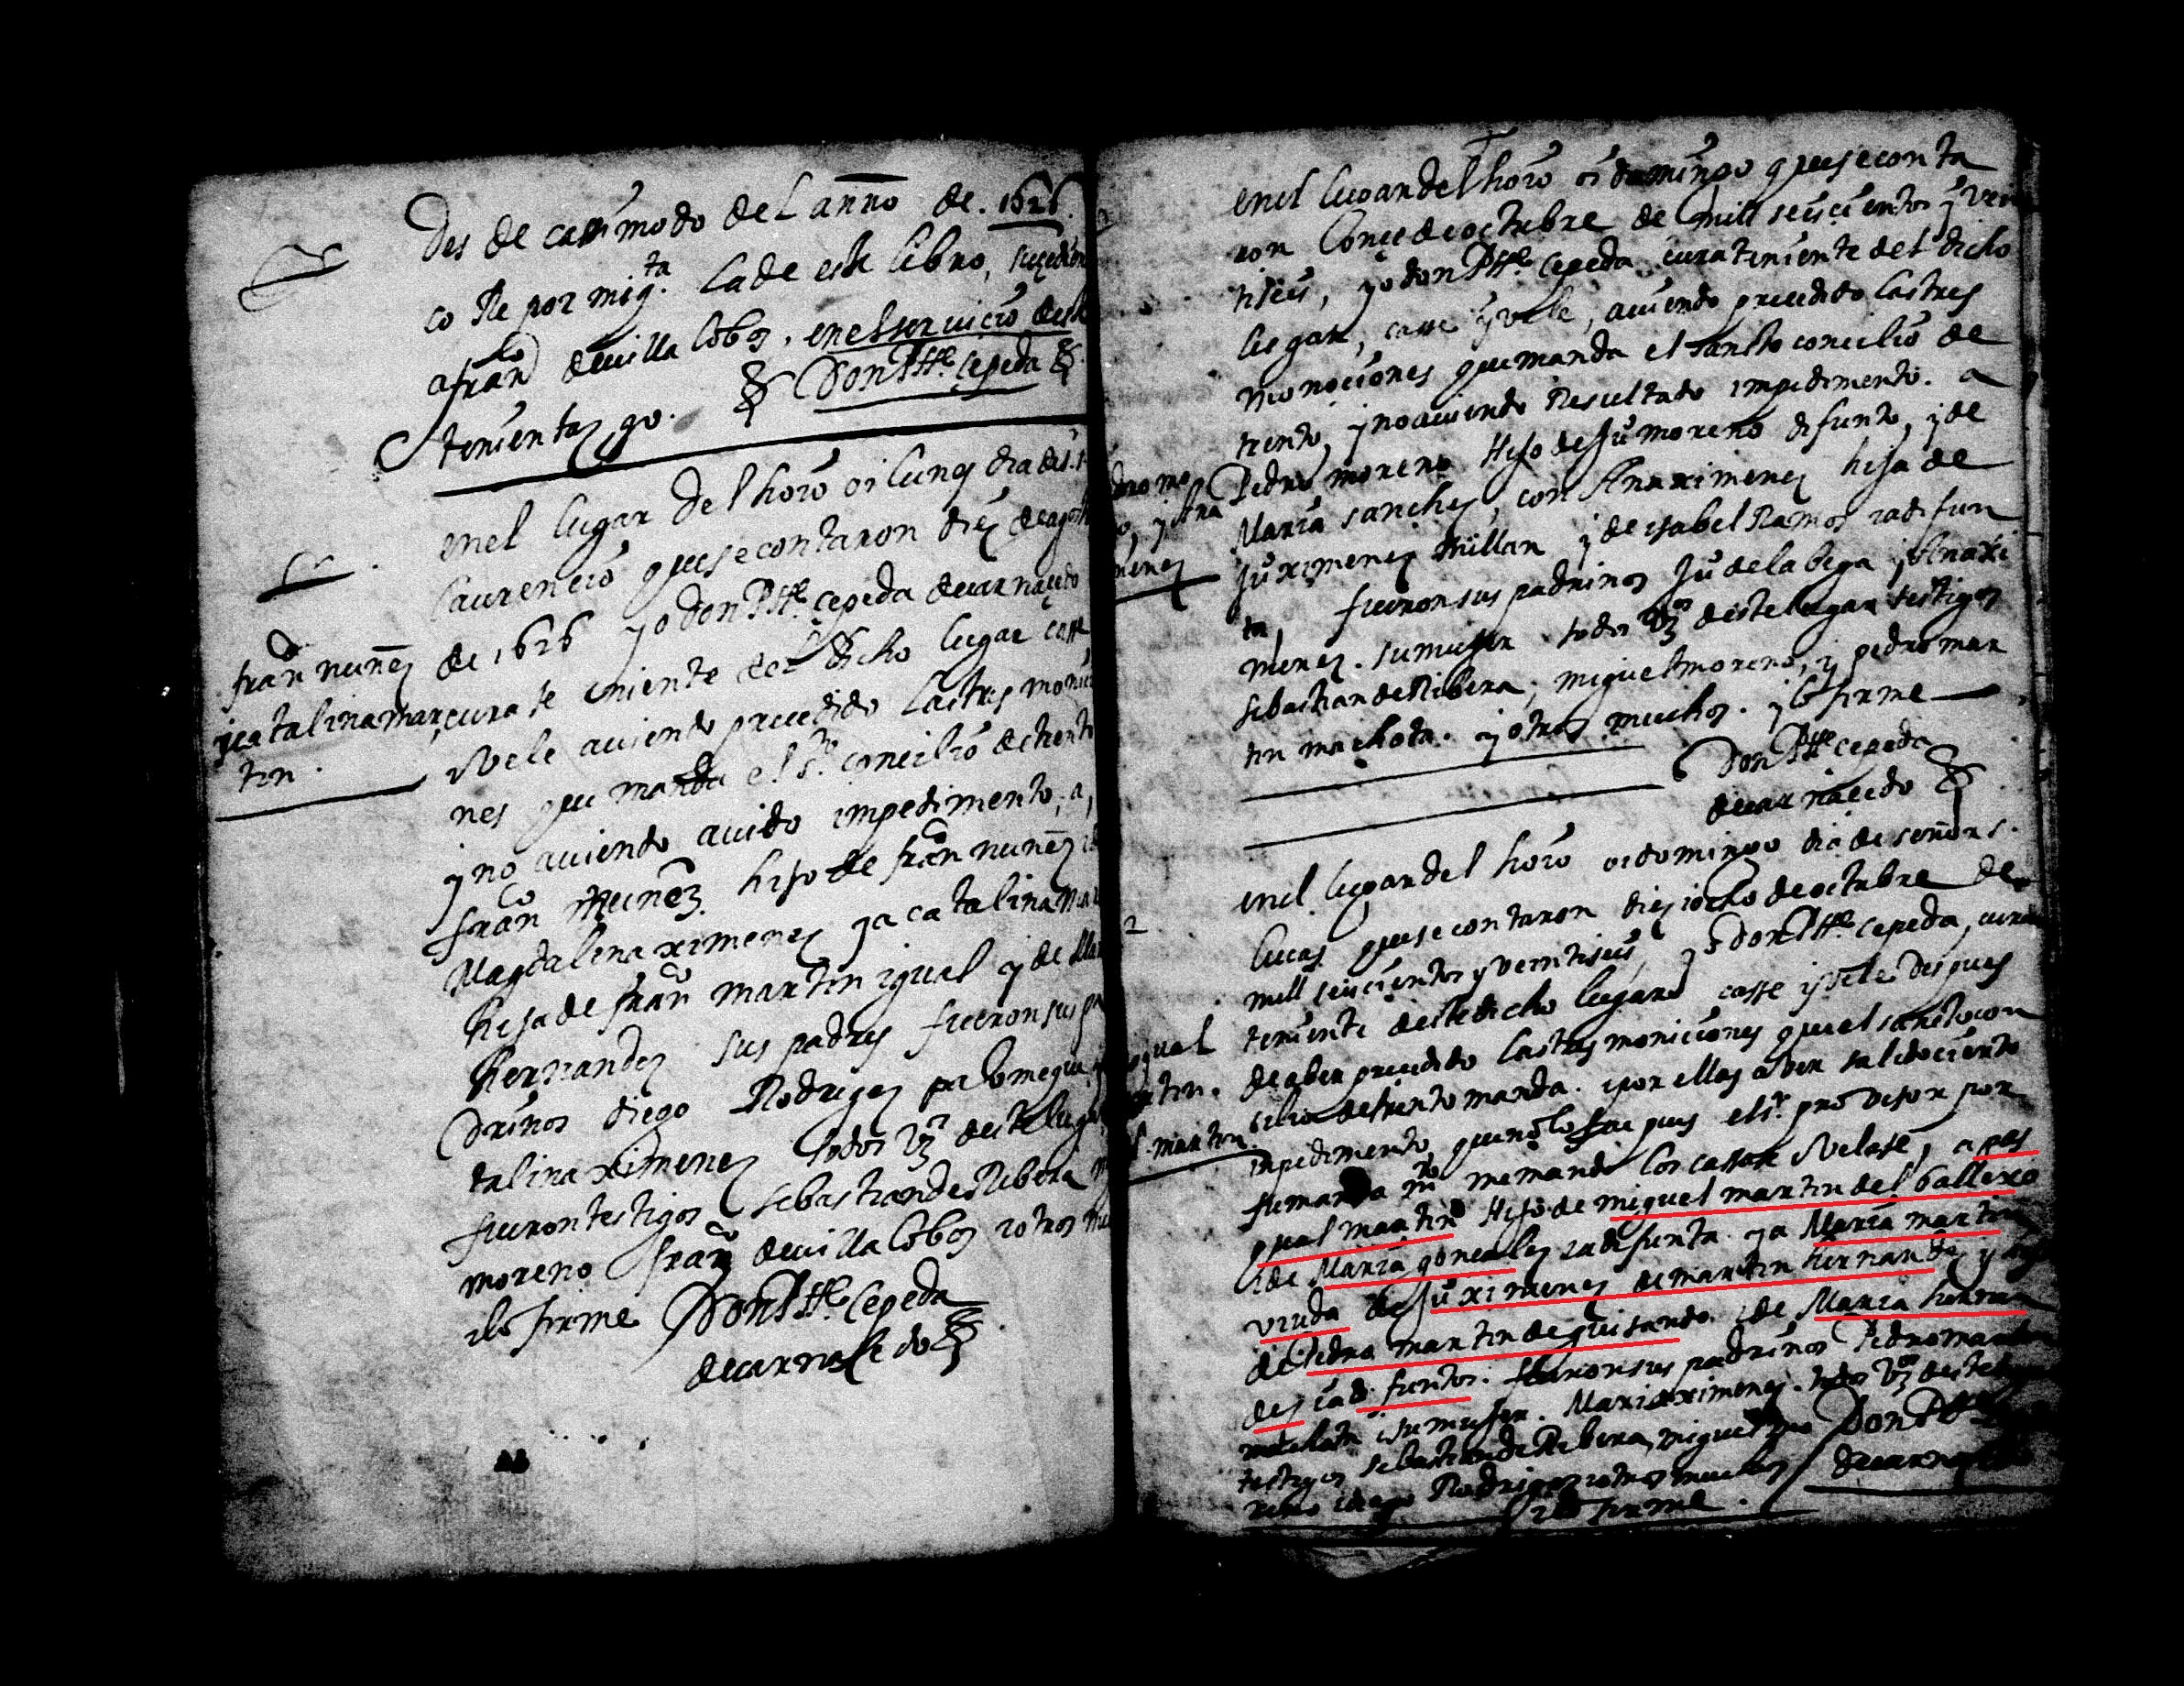 Des de casimodo del anño de. 1626.
co Re por mig.ta la de este libro, suçedion
a fran.co de villa lobos, en el servicio deste
teniente azgo. Don Ptte. Cepeda
en el lugar del horo oi lunes dia de s.
Laurencio que se contaron diez de agosto
de 1626 yo don Ptte. cepeda de varnaçedo
fran.co nuñez
y catalina mar
tin.
cura te eniente del dicho lugar casse
i Vele aviendo precedido las tres monicio
nes que manda el s.to concilio de trento
y no aviendo avido impedimento, a,
fran.co Nuñez. hijo de fran.co nunez
Magdalena ximenez ya catalina mar
hija de fran.co martin igual y de Mar
hernandez sus padres fueron sus pa
drinos diego Rodrigez palomeque y
talina ximenez todos vz.os deste lugar
fueron testigos sebastian de Ribera
moreno fran.co de villa lobos i otros mu
i lo firme Don Ptte. Cepeda
de varnaçedo
en el lugar del horo oi domingo que se conta
ron Conçe de octubre de mill seiscientos y vein
tiseis, yo don Ptte. Cepeda cura teniente del dicho
lugar, casse y vele, aviendo precedido las tres
moniciones que manda el sancto concilio de
trento, y no aviendo Resultado impedimento. a
Pedro moreno Hijo de Ju.o moreno difunto, y de
Maria sanchez, con Ana ximenez hija de
dro mo
o, y Ana
menez
Ju.o ximenez Millan y de ysabel Ramos ia difun
ta, fueron sus padrinos Ju.o de la bega y Ana xi
menez. su mujer todos vz.os deste lugar testigos
sebastian de Ribera, miguel moreno, y pedro mar
tin machota. y otros muchos. y lo firme
Don Ptte cepeda
de varnaçedo
en el lugar del horo oi domingo dia de señor s.
2
Lucas que se contaron diez iocho de octubre de
mill seiscientos y veintiseis, yo don Ptte. cepeda, cura
teniente deste dicho lugar casse y vele despues
de aber precedido las tres moniciones que el sancto con
cilio de trento manda. i por ellas aber salido cierto
squal
rtin.
martin
impedimento, que no lo fue pues el s.r provisor por
su manda m.to me mando los casase i Velase, a pas
qual martin Hijo de miguel martin del ballexo
i de Maria gonçalez ia difunta. ya Maria martin
viuda de Ju.o ximenez de martin hernandez y hija
de Pedro martin de quisando. i de Maria hernan
dez ia difuntos. fueron sus padrinos Pedro martin
machota i su mujer. Maria ximenez. todos vz.os deste lugar
testigos sebastian de Ribera, miguel mo Don Ptte.
reno diego Rodrigez i otros muchos de varnaçedo
i lo firme.